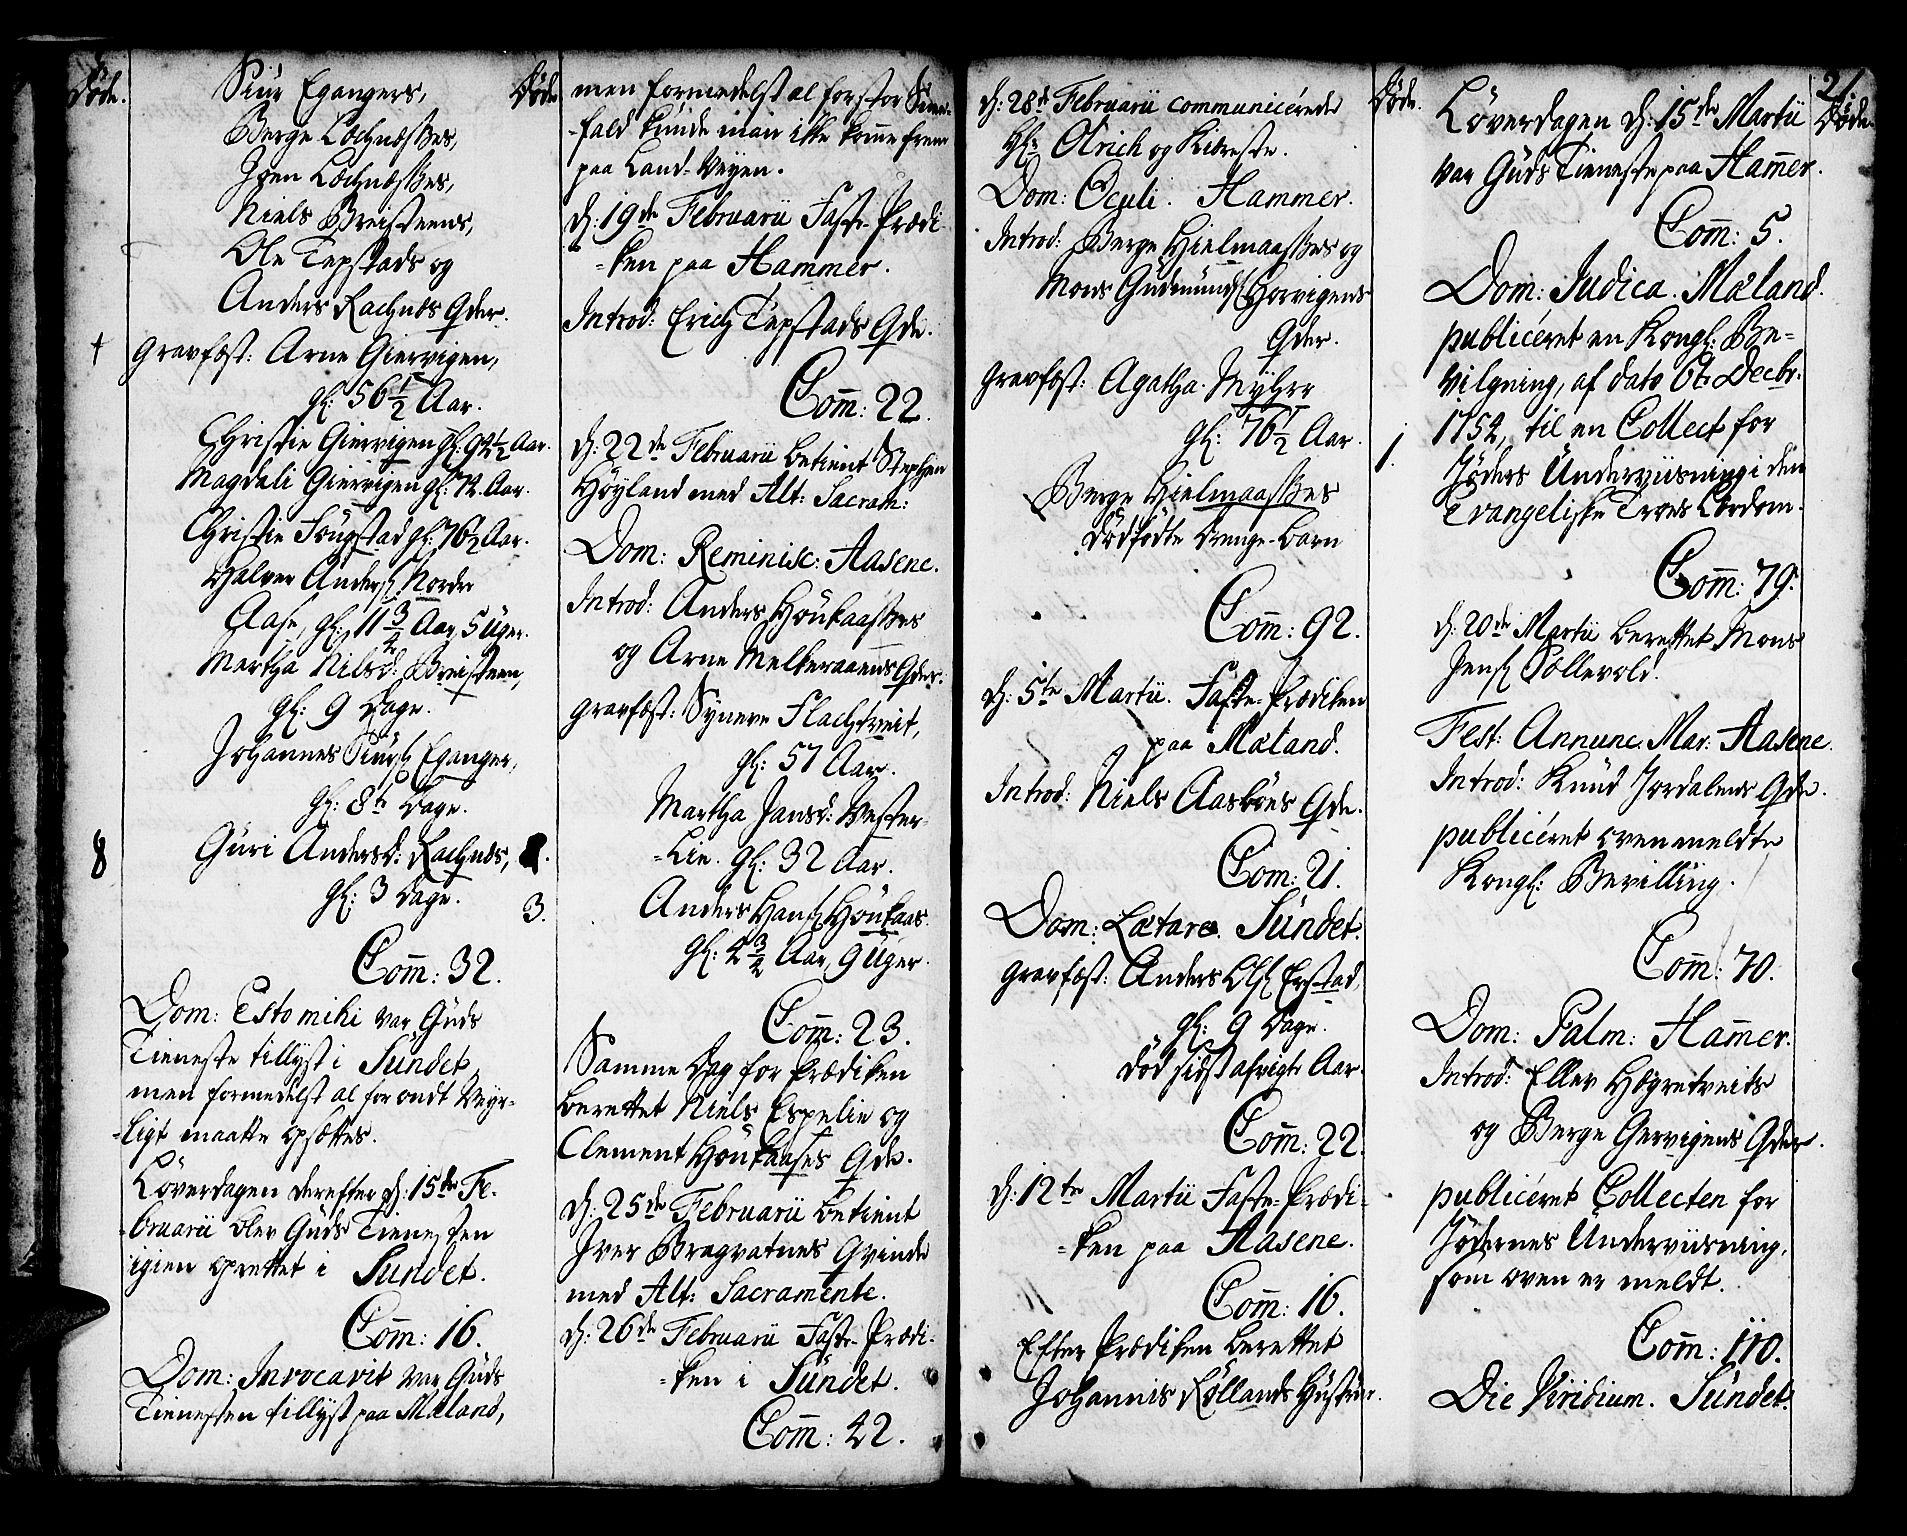 Døde.
Siur Egangers,
Berge Lechnæsses,
Joen Lechnæsses,
Niels Breisteens,
Ole Tepstads og
Anders Rachnæs Qder.
† Gravfæst: Arne Giervigen,
gl: 56 1/2 Aar.
Christie Giervigen gl: 94 1/2 Aar.
Magdali Giervigen gl: 72. Aar.
Christie Fougstad gl: 76 1/2 Aar.
Halvor Anders: Nordre
Aase, gl: 11 3/4 Aar, 5 Uger.
Martha Nilsd: Breisteen,
gl: 9 Dage.
Johannes Siurs: Eganger,
gl: 8te Dage.
8 Guri Andersd: Rachnæs,
gl: 3 Dage. 3.
Com̅: 32.
Dom: Esto mihi var Guds
Tieneste tillyst i Sundet,
men formedelst al for ondt Veyr-
-ligt maatte opsættes.
Løverdagen derefter d: 15de Fe-
-bruarii blev Guds Tienesten
igien oprettet i Sundet.
Com̅: 16.
Dom: Invocavit var Guds
Tienesten tillyst paa Mæland,
Døde
men formedelst al for stor Snee-
-fald kunde man ikke komme frem
paa Land-Veyen.
d: 19de Februarii Faste-Prædi-
-ken paa Hammer.
Introd: Erich Tepstads Qde.
Com̅: 22.
d: 22de Februarii betient Stephen
Høyland med Alt: Sacram:
Dom: Reminisc: Aasene.
Introd: Anders Houkaasses
og Arne Melkeraaens Qder.
Gravfæst: Synneve Flachtveit,
gl: 57 Aar.
Martha Jansd: Vester-
-Lie. gl: 32 Aar.
Anders Hans: Houkaas.
gl: 4 3/4 Aar, 9 Uger.
Com̅: 23.
Samme Dag for Prædiken
berettet Niels Espelie og
Clement Houkaases Qde.
d: 25de Februarii betient
Iver Bragvatnes Qvinde
med Alt: Sacramente.
d: 26de Februarii Faste-Prædi-
-ken i Sundet.
Com̅: 42.
d: 28de Februarii communicérede
Hr: Olrich og Kiereste.
Dom: Oculi. Hammer.
Introd: Berge Hielmaasses og
Mons Gudmunds: Horvigens
Qder.
Gravfæst: Agatha Myhre
gl: 76 1/2 Aar.
Berge Hielmaasses
dødfødte Drenge-Barn
Com̅: 92.
d: 5te Martii. Faste-Prædiken
paa Mæland.
Introd: Niels Aasboes Qde.
Com: 21.
Dom: Lætare. Sundet.
Gravfæst: Anders Ols: Erstad,
gl: 9 Dage.
død sidst afvigte Aar.
Com̅: 22.
d: 12te Martii Faste-Prædi-
-ken paa Aasene.
Com̅: 16.
Efter Prædiken berettet
Johannis Røllands Hustrue.
Døde.
1.
21.
Døde.
Løverdagen d: 15de Martii
var Guds Tieneste paa Ham̅er.
Com̅: 5.
Dom: Judica. Mæland.
publicéret en Kongl: Be-
vilgning, af dato 6t: Decbr:
1752, til en Collect for
Jøders Underviisning i den
Evangeliske Troes Lærdom.
Com̅: 79.
d: 20de Martii berettet Mons
Jens: Sællevold.
Fest: Annunc. Mar: Aasene.
Introd: Knud Jordalens Qde.
publicéret ovenmeldte
Kongl: Bevilling.
Com̅: 70.
Dom: Palm: Ham̅er.
Introd: Eller Høgretveits
og Berge Gervigens Qder.
publicéret Collecten for
Jødernes Underviisning,
som oven er meldt.
Com̅: 110.
Die Viridium. Sundet.